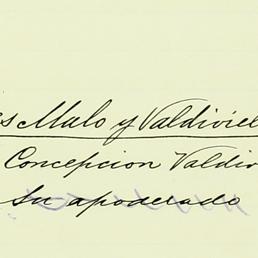 es Malo y Valdiviel
Concepcion Valdiv
Su apoderado